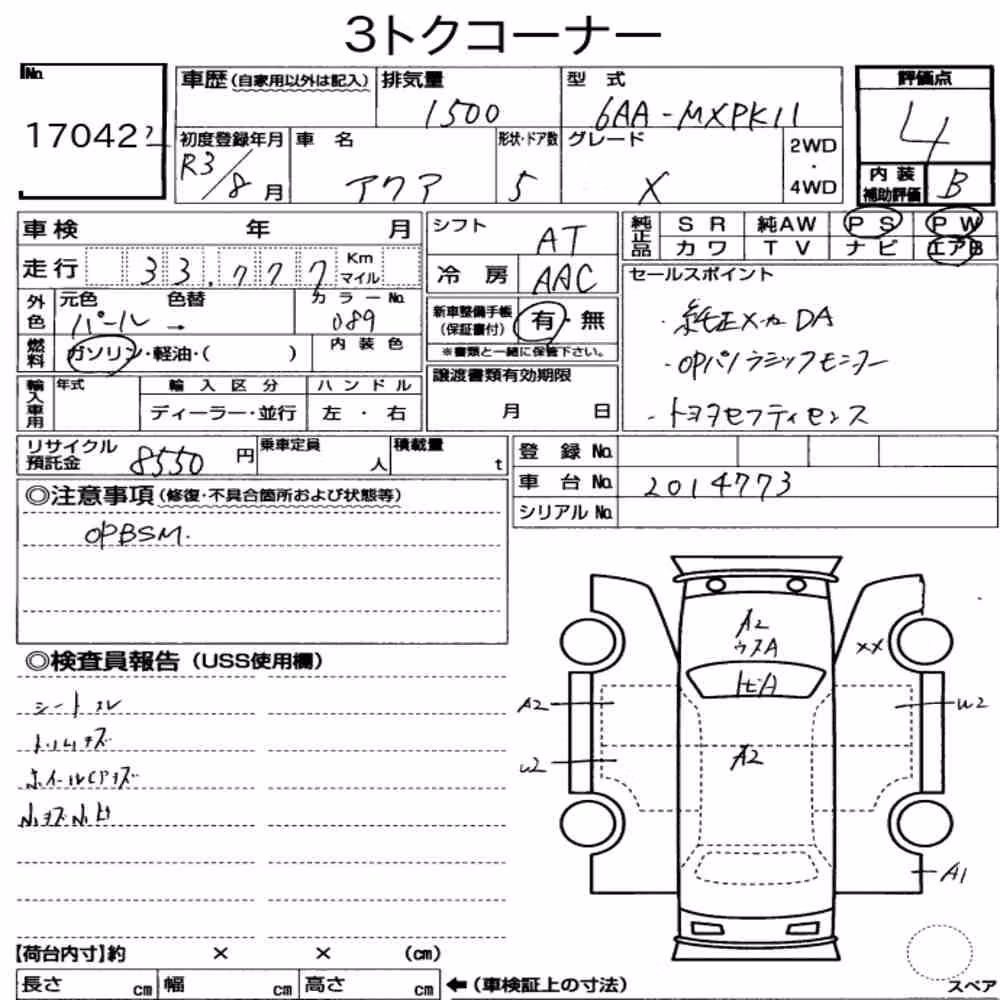 3トクコーナー
No.
17042
車歴(自家用以外は記入)
排気量
1500
型 式
6AA-MXPK11
評価点
4
初度登録年月
R3/8月
車 名
アクア
形状・ドア数
5
グレード
X
2WD
・
4WD
内装
補助評価
B
車検 年 月
走行 33,777 Km
マイル
外色
元色 色替
パール →
カラーNo.
089
燃料
ガソリン・軽油・( )
内装色
輸入車用
年式
輸入区分
ディーラー・並行
ハンドル
左・右
シフト
AT
冷房
AAC
新車整備手帳
(保証書付)
有・無
※書類と一緒に保管下さい。
譲渡書類有効期限
月 日
純正品
SR 純AW PS PW
カワ TV ナビ エアB
セールスポイント
・純正メーカーDA
・OPパノラミックモニター
・トヨタセフティセンス
リサイクル
預託金
8550円
乗車定員
人
積載量
t
登録No.
車台No.
2014773
シリアルNo.
◎注意事項(修復・不具合箇所および状態等)
OPBSM.
◎検査員報告(USS使用欄)
シートスレ
トリムキズ
ホイールCPキズ
小キズ小凹
A2
ウスA
トビA
XX
A2
W2
W2
A2
A1
【荷台内寸】約 × × (cm)
長さ cm 幅 cm 高さ cm
←(車検証上の寸法)
スペア